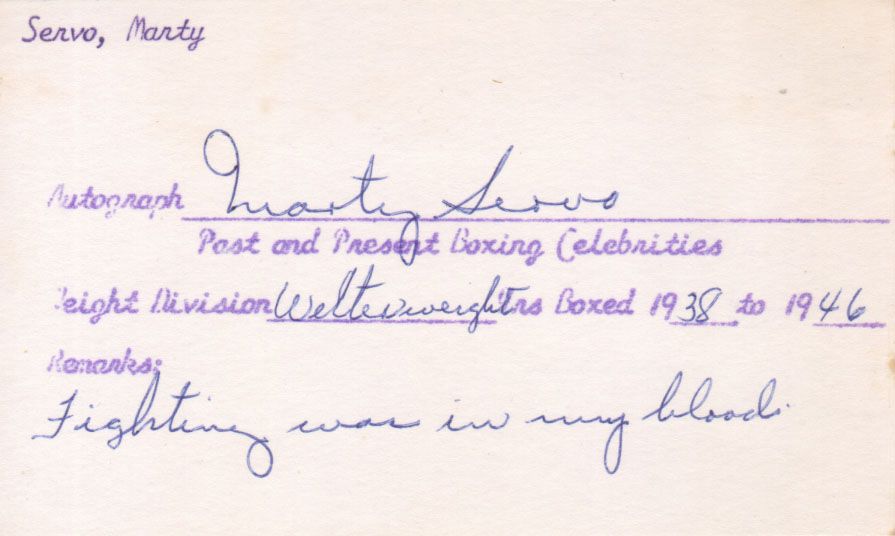 Servo, Marty
Autograph Marty Servo
Past and Present Boxing Celebrities
Weight Division Welterweight Yrs Boxed 1938 to 1946
Remarks:
Fighting was in my blood.